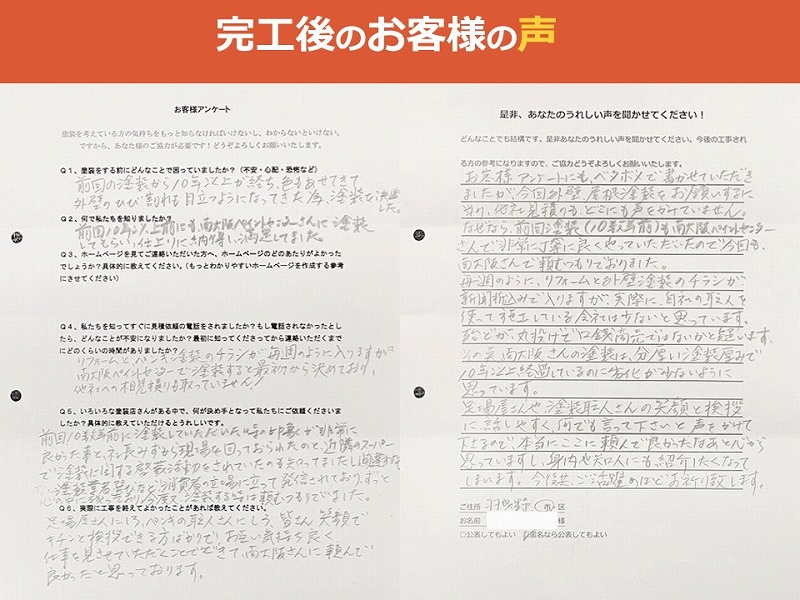 完工後のお客様の声
お客様アンケート
塗装を考えている方の気持ちをもっと知らなければいけないし、わからないといけない。
ですから、あなた様のご協力が必要です！どうぞよろしくお願いいたします。
Q1、塗装をする前にどんなことで困っていましたか？（不安・心配・恐怖など）
前回の塗装から10年以上が経ち、色もあせてきて
外壁のひび割れも目立つようになってきた為、塗装を決意
した。
Q2、何で私たちを知りましたか？
前回10年以上前にも、南大阪ペイントセンターさんに塗装
してもらい、仕上りに納得し、満足してました。
Q3、ホームページを見てご連絡いただいた方へ、ホームページのどのあたりがよかった
でしょうか？具体的に教えてください。（もっとわかりやすいホームページを作成する参考
にさせてください）
Q4、私たちを知ってすぐに見積依頼の電話をされましたか？もし電話されなかったとし
たら、どんなことが不安になりましたか？最初に知ってくださってから連絡いただくまで
にどのくらいの時間がありましたか？
リフォームとペンキ塗装のチラシが毎週のように入りますが
南大阪ペイトセンターで塗装すると最初から決めており、
他社への相見積りも取っていません！
Q5、いろいろな塗装店さんがある中で、何が決め手となって私たちにご依頼くださいま
したか？具体的に教えていただけるとうれしいです。
前回10数年前に塗装していただいた時の印象が非常に
良かった事と、社長みずから現場を回っておられたのと、近隣のスーパー
で塗装に関する啓蒙活動をされていたのも知ってましたし
塗装業者選びなど、消費者の立場に立って発信されており、ずっと
心の中に残っており、今度又、塗装する時は頼むつもりでいました。
Q6、実際に工事を終えてよかったことがあれば教えてください。
足場屋さんにしろ、ペンキの職人さんにしろ、皆さん笑顔で
キチンと挨拶できる方ばかりで、お互い気持ち良く
仕事を見させていただくことでできて、南大阪さんに頼んで
良かったと思っております。
是非、あなたのうれしい声を聞かせてください！
どんなことでも結構です、是非あなたのうれしい声を聞かせてください。今後の工事され
る方の参考になりますので、ご協力どうぞよろしくお願いいたします。
お客様アンケートにも、ベタボメで書かせていただき
ましたが、今回外壁、屋根塗装をお願いするに
当り、他社見積りも、どこにも声をかけていません。
なぜなら、前回塗装（10数年前）も南大阪ペイントセンター
さんで非常に丁寧に良くやっていただいたので今回も、
南大阪さんで頼むつもりでおりました。
毎週のように、リフォームと外壁塗装のチラシが
新聞折込みで入りますが、実際に、自社の職人を
使って施工している会社は少ないと思っています。
殆どが、丸投げで口銭商売ではないかと疑います。
その点、南大阪さんの塗装は、分厚い塗装厚みで
10年以上経過しているのに劣化が少ないように
思っています。
足場屋さんや塗装職人さんの笑顔と挨拶
に、話しやすく何でも言って下さいと声をかけて
下さるので、本当にここに頼んで良かったなあと心から
思っていますし、身内や知人にも紹介したくなって
しまいます。今後共、ご活躍のほどお祈り致します。
ご住所 羽曳野 市・区
お名前 様
□公表してもよい □匿名なら公表してもよい